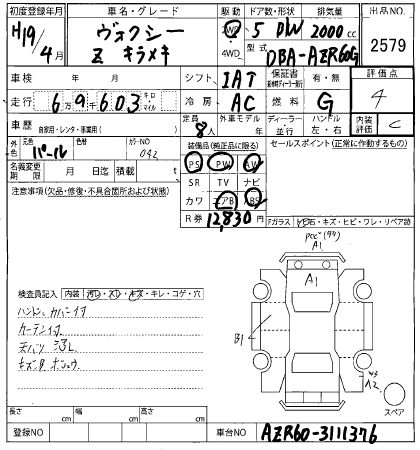 初度登録年月 車名・グレード 駆動 ドア数・形状 排気量 出品NO.
H19年 4月 ヴォクシー 2WD 5 DW 2000cc 2579
Z キラメキ 4WD 型式 DBA-AZR60G
車検 年 月 シフト IAT 保証書 有・無 評価点
走行 6万9千603 キロ マイル 冷房 AC 燃料 G 4
車歴 自家用・レンタ・事業用( ) 定員 8人 外車モデル 年 ディーラー 並行 ハンドル 左・右 内装評価 C
外色 元色 パール 色替 カラーNO 042 装備品(純正品に限る) セールスポイント(正常に作動するもの)
名義変更期限 月 日迄 積載 t PS PW AW
注意事項(欠品・修復・不具合箇所および状態) SR TV ナビ
カワ エアB ABS
R券 12,830円
Fガラス 飛石・キズ・ヒビ・ワレ・リペア跡
A1
A1
検査員記入 内装 汚レ・スレ・キズ・キレ・コゲ・穴
ハンドル カバー付
カーテン付
B1
A2
スペア
長さ cm 幅 cm 高さ cm
登録NO 車台NO AZR60-3111376